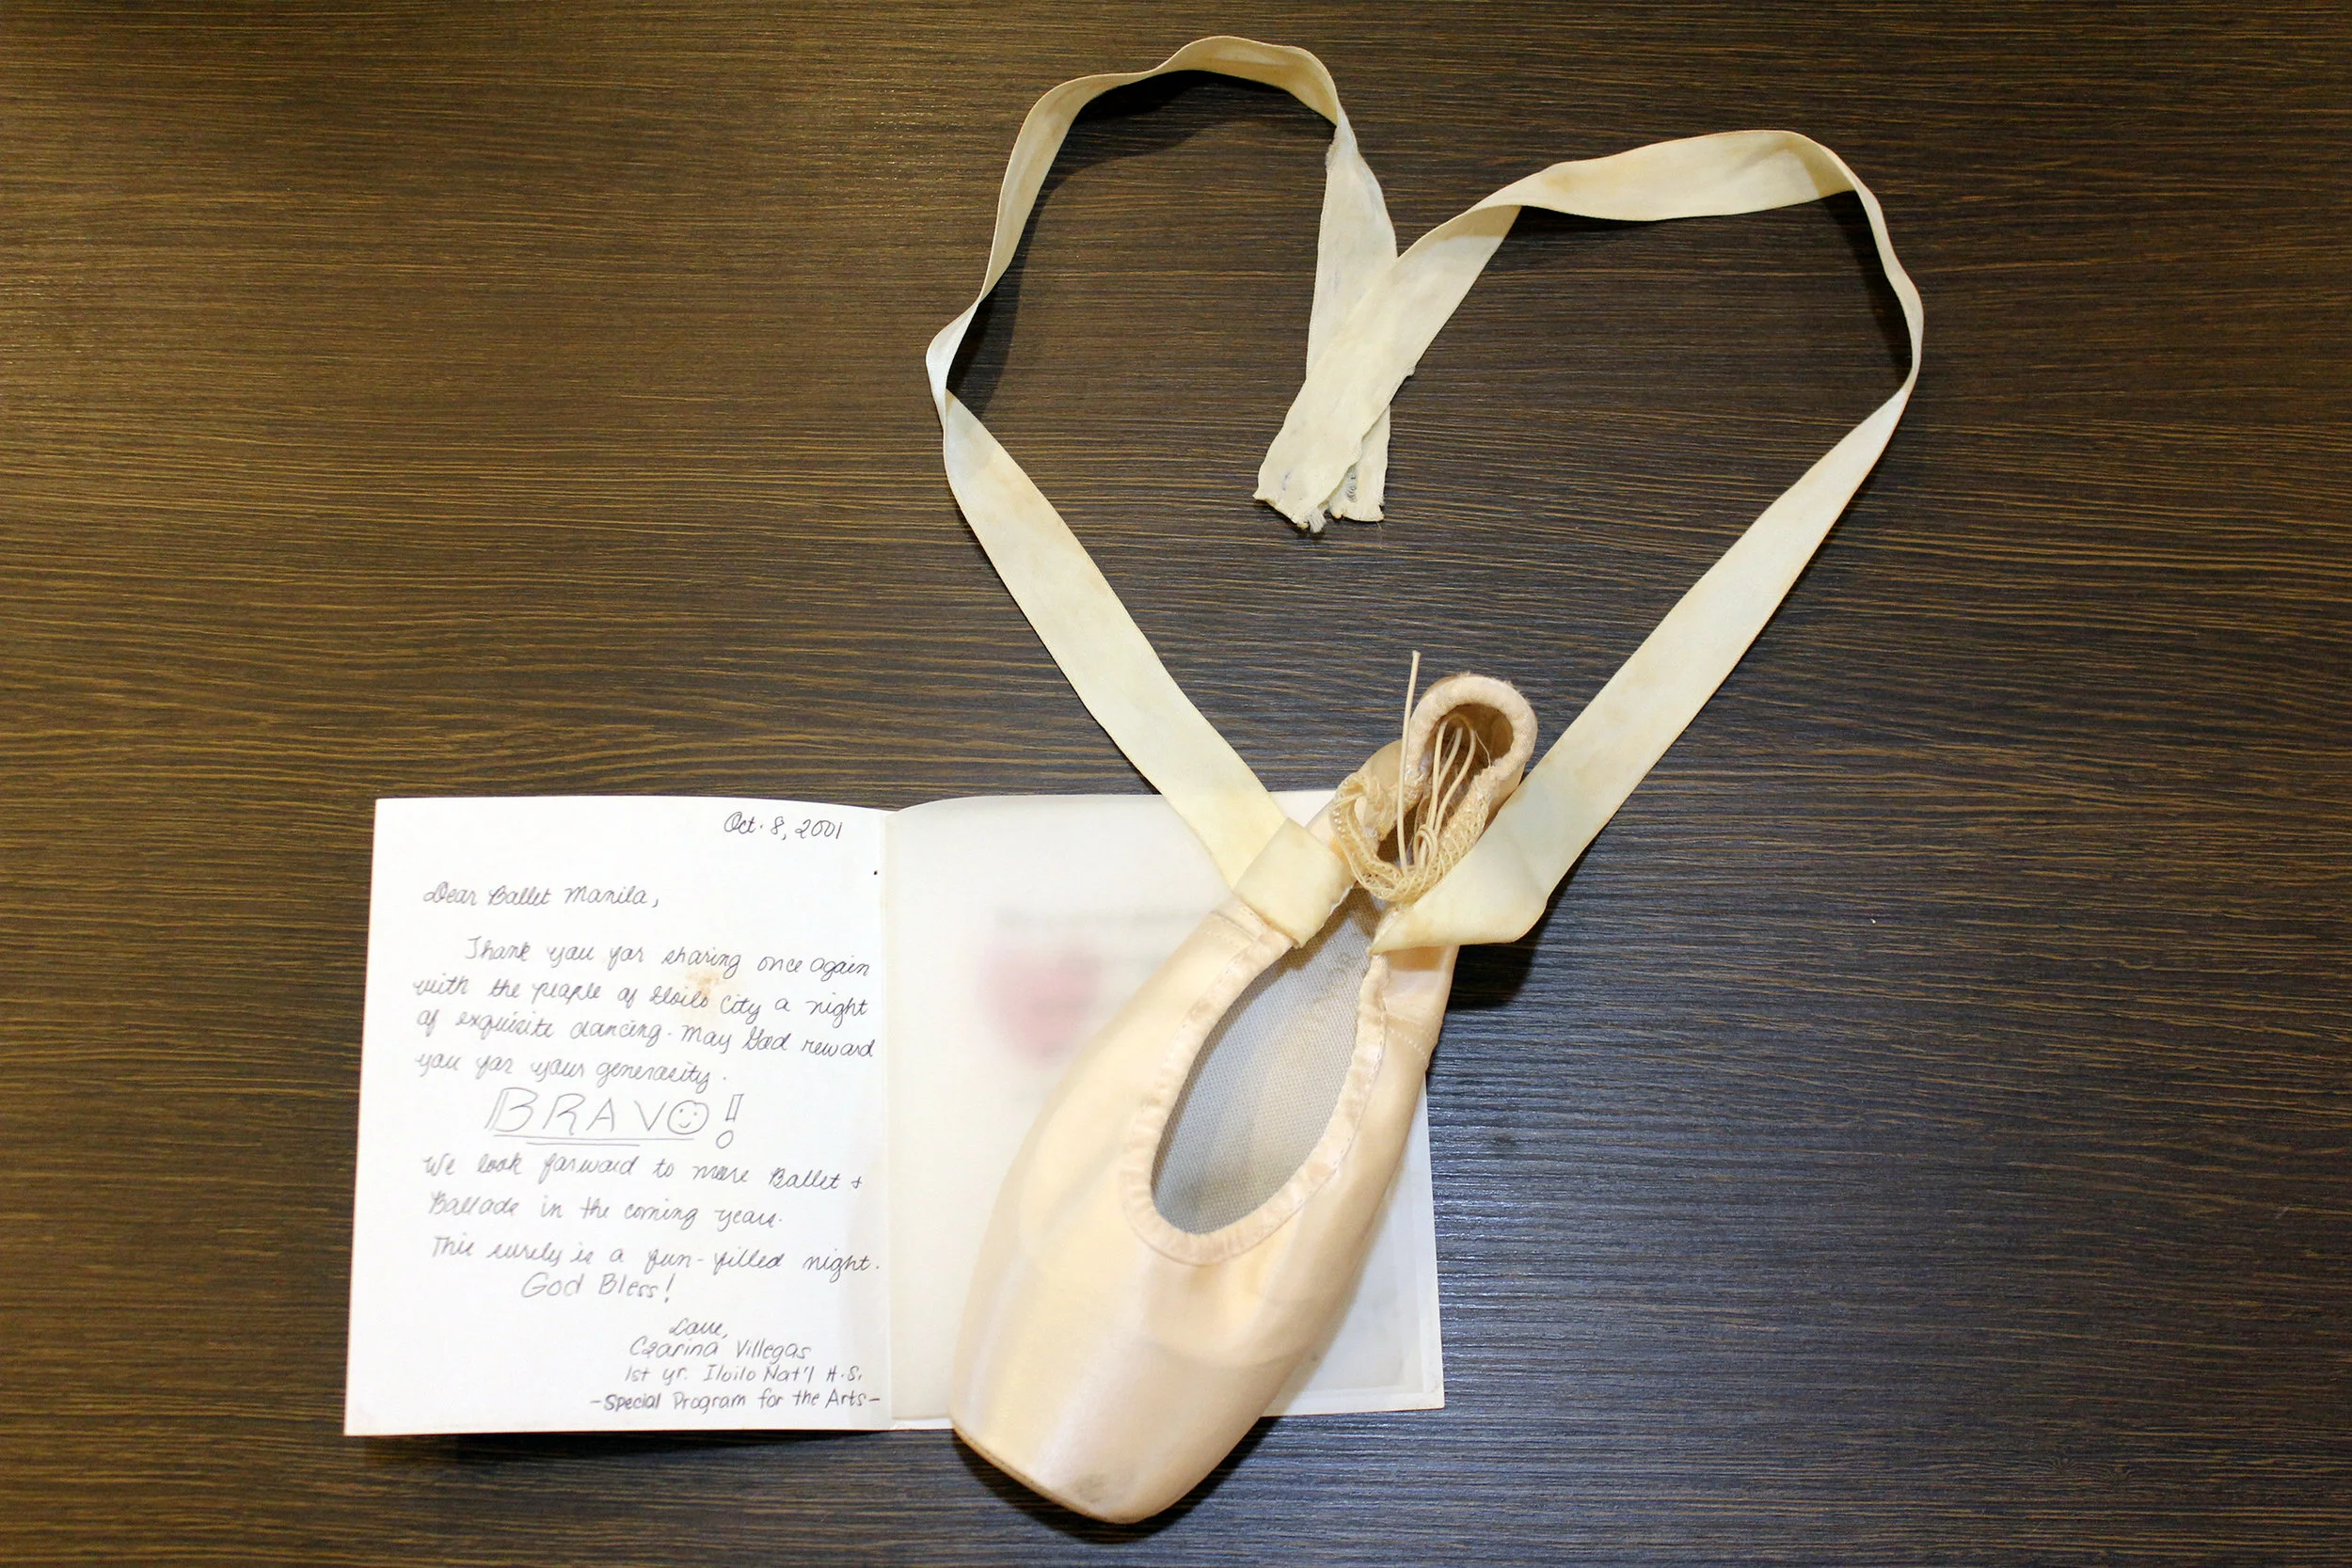 Oct. 8, 2001
Dear Ballet Manila,
Thank you for sharing once again
with the people of Iloilo City a night
of exquisite dancing. May God reward
you for your generosity.
BRAVO!
We look forward to more Ballet &
Ballads in the coming years.
This surely is a fun-filled night.
God Bless!
Love,
Czarina Villegas
1st yr. Iloilo Nat'l H.S.
-Special Program for the Arts-